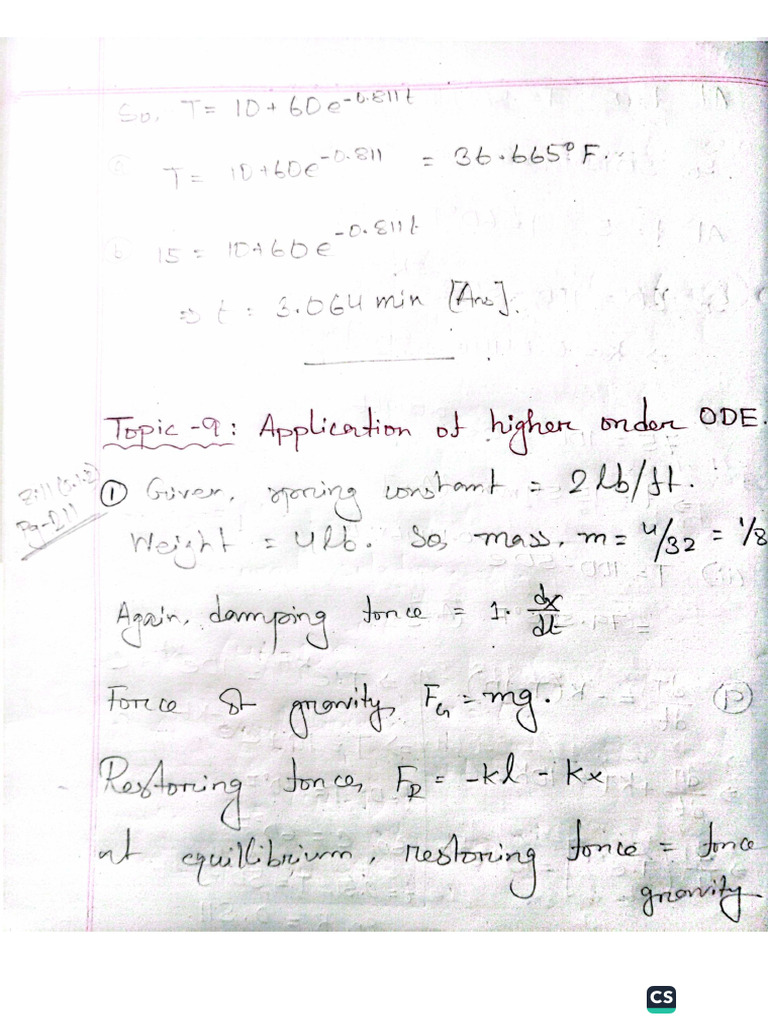 So, T = 10 + 60e^-0.811t
(a) T = 10+60e^-0.811 = 36.665°F.
(b) 15 = 10+60e^-0.811t
⇒ t = 3.064 min [Ans].
Topic -9: Application of higher order ODE.
① Given, spring constant = 2 lb/ft.
Pg-211
Weight = 4lb. So, mass, m = 4/32 = 1/8
Again, damping force = 1. dx/dt
Force of gravity, F_G = mg.
Restoring force, F_R = -kl - kx
at equillibrium, restoring force = force
gravity
CS